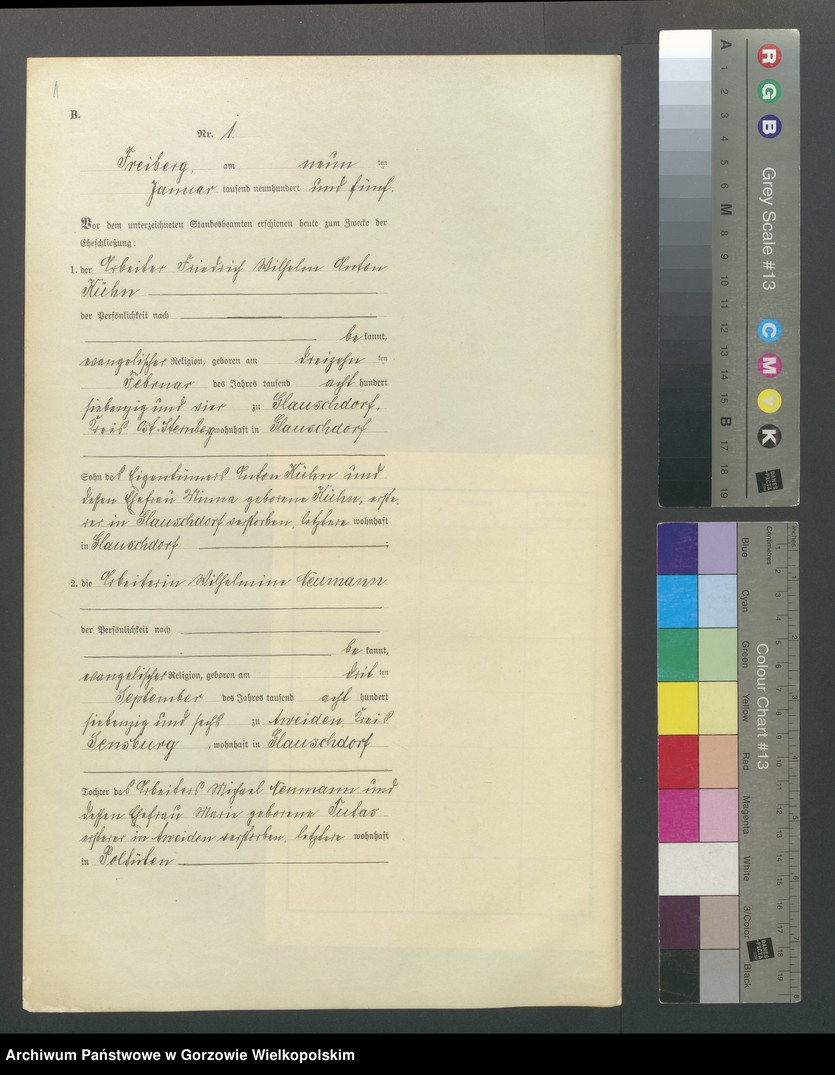 1
B.
Nr. 1
Freiberg, am neun ten
Januar tausend neunhundert und fünf.
Vor dem unterzeichneten Standesbeamten erschienen heute zum Zwecke der
Eheschließung:
1. der Arbeiter Friedrich Wilhelm Anton
Kühn
der Persönlichkeit nach
be kannt,
evangelischer Religion, geboren am dreizehn ten
Februar des Jahres tausend acht hundert
siebenzig und vier zu Glauschdorf,
Kreis Ost-Sternberg wohnhaft in Glauschdorf
Sohn des Eigentümers Anton Kühn und
dessen Ehefrau Minna geborene Kühn, erste-
rer in Glauschdorf verstorben, letztere wohnhaft
in Glauschdorf
2. die Arbeiterin Wilhelmine Neumann
der Persönlichkeit nach
be kannt,
evangelischer Religion, geboren am drit ten
September des Jahres tausend acht hundert
siebenzig und sechs zu Aweiden Kreis
Sensburg, wohnhaft in Glauschdorf
Tochter des Arbeiters Michael Neumann und
dessen Ehefrau Marie geborene
ersterer in Aweiden verstorben, letztere wohnhaft
in
A 1 2 3 4 5 6 M 8 9 10 11 12 13 14 15 B 17 18 19
R G B
Grey Scale #13
C M Y K
DANES PICTA
Blue Cyan Green Yellow Red Magenta White 3/Color Black
Colour Chart #13
Centimetres
Inches
DANES PICTA
Archiwum Państwowe w Gorzowie Wielkopolskim